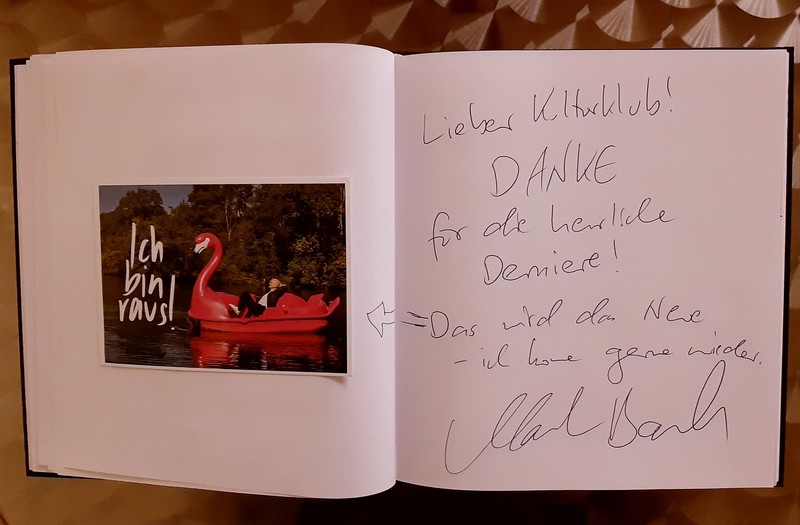 Ich
bin
raus!
Lieber Kulturklub!
DANKE
für die herrliche
Derniere!
Das wird das Neue
– ich komme gerne wieder.